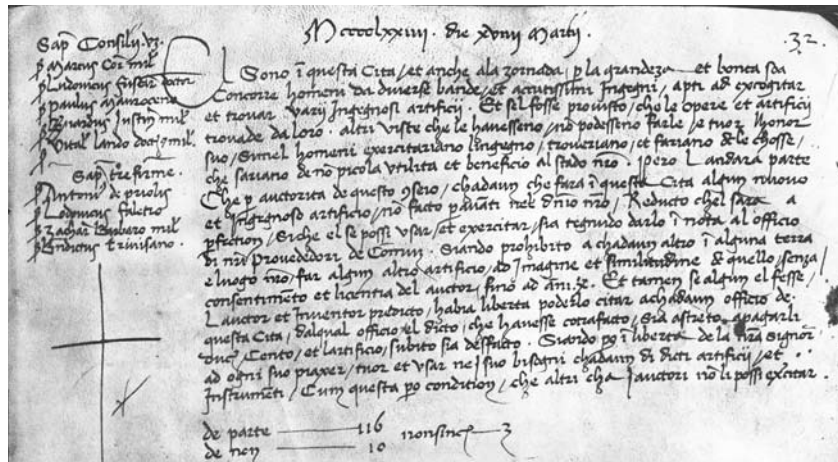 Mcccclxxiiij. die xviiij Martij
32.
Sap. Consilij
Marcus Cor. mil.
Ludovicus fuscar. doctor
paulus Mauroceno
Bnardus Justin. mil.
Vital lando doct. mil.
Sap. tre firme.
Antoni. de priolis
Lodovicus faletro
zachar. Barbaro mil.
Bndictus trivisano.
El Sono i questa Cita, et anche ala zornada, p la grandeza et bonta soa
Concorre homeni da diverse bande, et acutissimi Ingegni, apti ad excogitar
et trovar varij Ingegnosi artificij. Et sel fosse provisto, cho le opere et artificij
trovade da loro, altri viste che le havesseno, no podesseno farle, e tuor lhonor
suo, Simel homeni exercitariano lingegno, troveriano, et fariano dele chosse,
che sariano de no picola utilita et beneficio al stado nro. Pero Landara parte
Che p auctorita de questo ɔseio, chadaun che fara i questa Cita algun nuovo
et Ingegnoso artificio, no facto p avanti nel dnio nro, Reducto chel sara a
pfection, Siche el se possi usar, et exercitar, sia tegnudo darlo i nota al officio
di nri provededori de Comun. Siando prohibito a chadaun altro i alguna terra
e luogo nro, far algun altro artificio, ad Imagine et similitudine de quello, senza
consentimeto et licentia del auctor, fino ad ani .x. Et tamen se algun el fesse,
Lauctor et Inventor predicto, habia liberta poderlo citar a chadaun officio de
questa Cita, dalqual officio el dicto, che havesse cotrafacto, Sia astreto, a pagarli
duc. Cento, et lartificio, subito sia desfacto. Siando po i liberta de la nra Signor.
ad ogni suo piaxer, tuor et usar nei suo bisogni chadaun di dicti artificij, et
Instrumeti, Cum questa po condition, che altri cha i auctori no li possi exercitar.
de parte 116
de non 10
nonsinc. 3